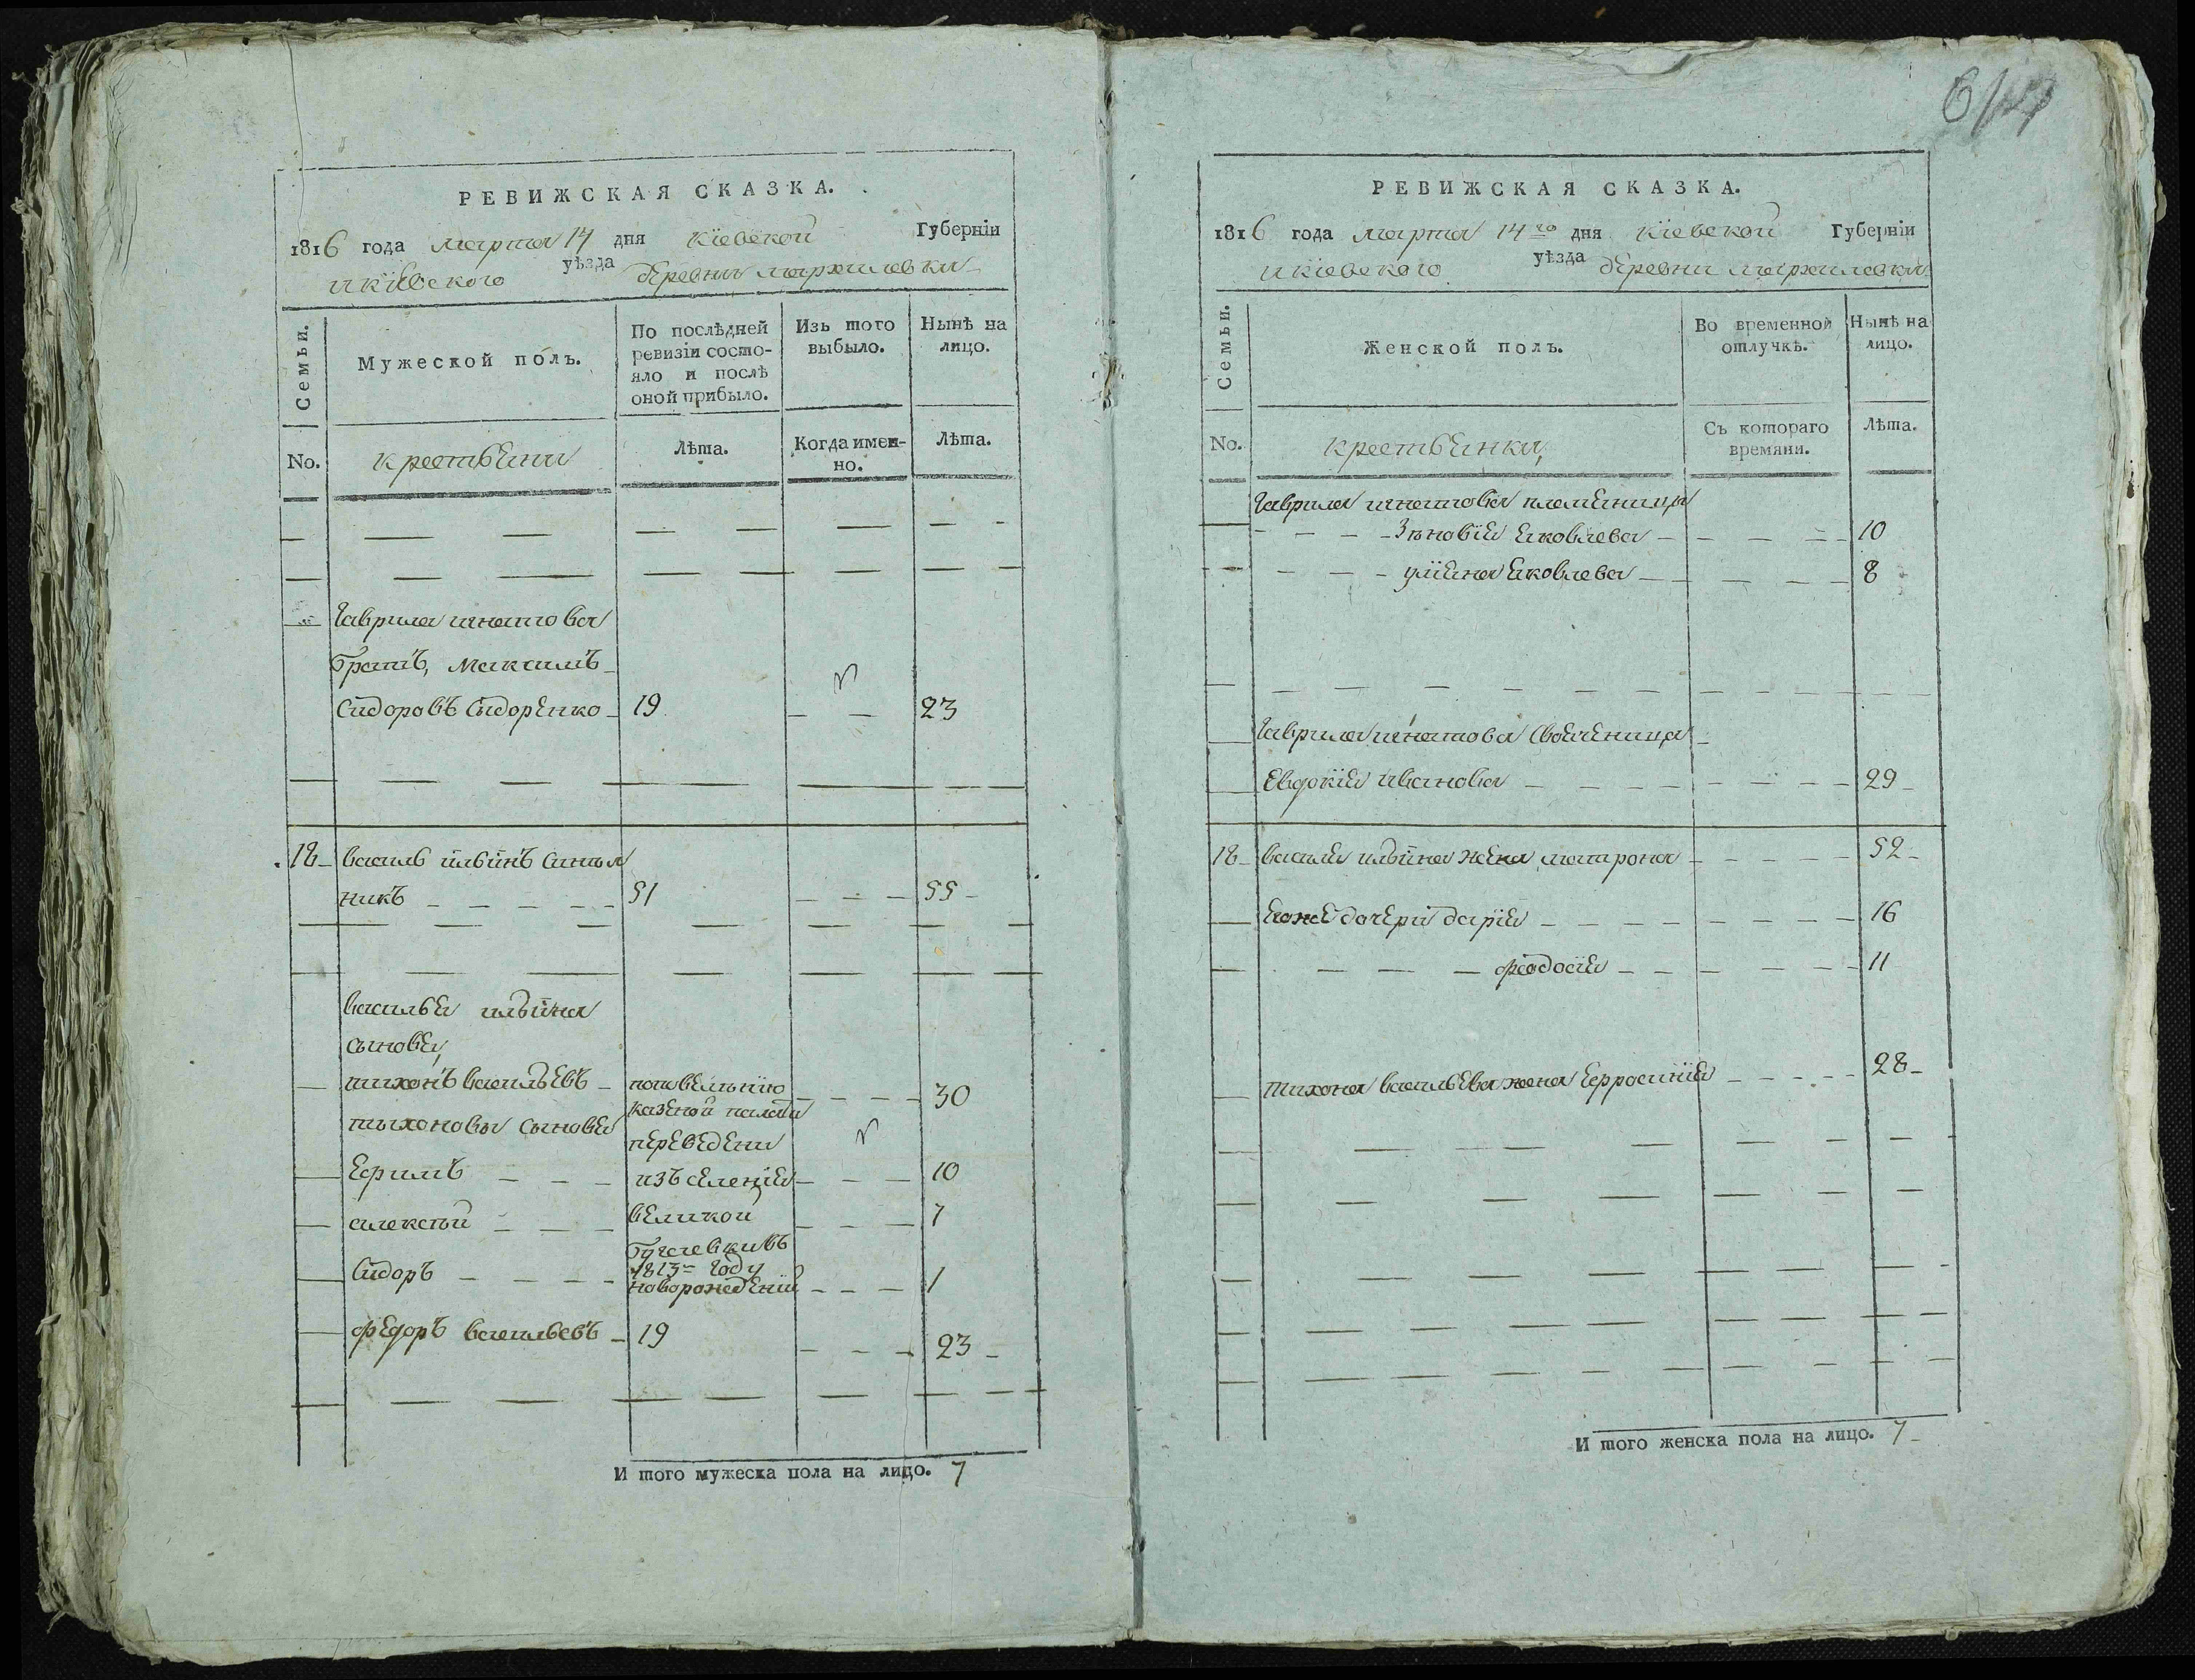 РЕВИЖСКАЯ СКАЗКА.
1816 года марта 14 дня Кіевской Губерніи
и Кіевского уѣзда деревни мархалевки
Семьи.
Мужеской полъ.
По послѣдней ревизіи состо-
яло и послѣ
оной прибыло.
Изъ того
выбыло.
Нынѣ на
лицо.
No.
крестьяни
Лѣта.
Когда имен-
но.
Лѣта.
Гаврила игнатова
братъ, Максимъ
Сидоровъ Сидоренко 19 23
18 василь ильинъ
никъ 51 55
василья ильина
сыновья
тихонъ васильевъ по повелѣнию 30
тихоновы сыновья казеной палати
переведени
Ефимъ изъ селения 10
алексѣй великой 7
Бугаевки въ
1813 году
Сидоръ новорожденій 1
Федоръ васильевъ 19 23
И того мужеска пола на лицо. 7
РЕВИЖСКАЯ СКАЗКА.
1816 года марта 14го дня Кіевской Губерніи
и Кіевского уѣзда деревни мархалевки
Семьи.
Женской полъ.
Во временной
отлучкѣ.
Нынѣ на
лицо.
No.
крестьянки,
Съ котораго
времяни.
Лѣта.
Гаврила игнатова племяници
Зѣновия яковлева 10
улияна яковлева 8
Гаврила игнатова своячница
Евдокия иванова 29
18 василя ильина жена матрона 52
его же дочери дария 16
феодосия 11
тихона васильева жена Ефросиния 28
И того женска пола на лицо. 7